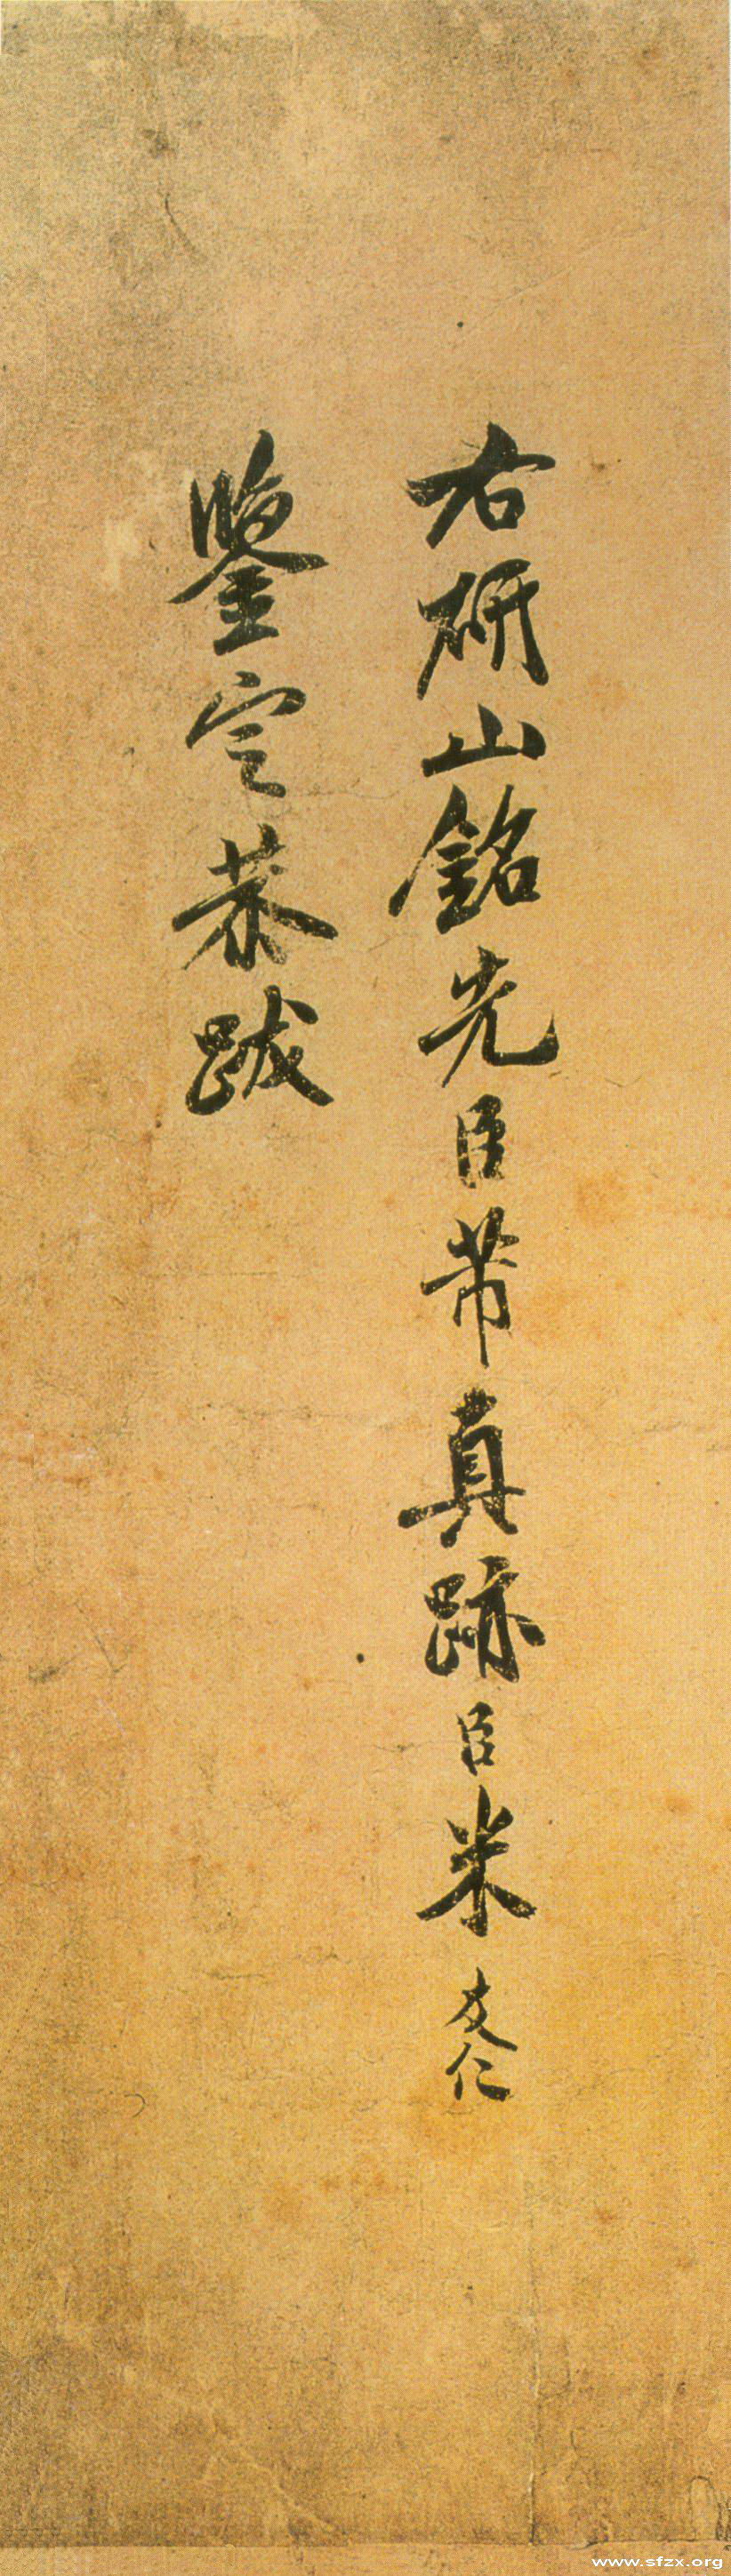 右研山銘先臣芾真跡臣米友仁
鑒定恭跋
www.sfzx.org